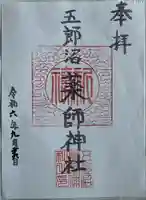 奉拝
五郎沼薬師神社
令和六年九月